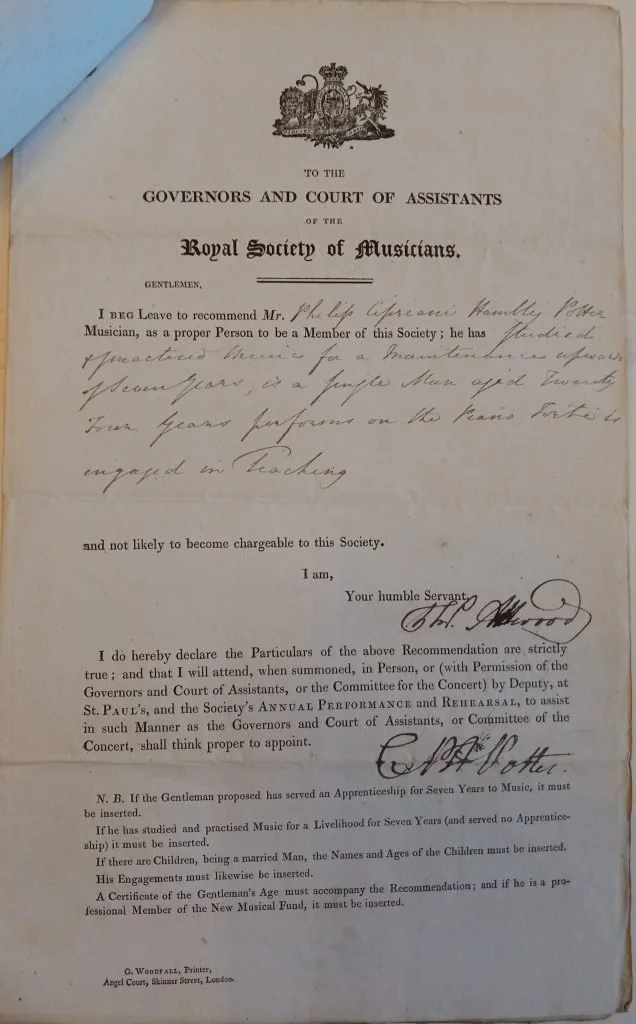 TO THE
GOVERNORS AND COURT OF ASSISTANTS
OF THE
Royal Society of Musicians.
GENTLEMEN,
I BEG Leave to recommend Mr. Philip Cipriani Hambly Potter
Musician, as a proper Person to be a Member of this Society; he has studied
& practised Music for a Maintenance upwards
of Seven Years, is a single Man aged Twenty
Four Years performs on the Piano Forte is
engaged in Teaching
and not likely to become chargeable to this Society.
I am,
Your humble Servant,
Thos. Attwood
I do hereby declare the Particulars of the above Recommendation are strictly
true; and that I will attend, when summoned, in Person, or (with Permission of the
Governors and Court of Assistants, or the Committee for the Concert) by Deputy, at
St. PAUL'S, and the Society's ANNUAL PERFORMANCE and REHEARSAL, to assist
in such Manner as the Governors and Court of Assistants, or Committee of the
Concert, shall think proper to appoint.
Potter.
N. B. If the Gentleman proposed has served an Apprenticeship for Seven Years to Music, it must
be inserted.
If he has studied and practised Music for a Livelihood for Seven Years (and served no Apprentice-
ship) it must be inserted.
If there are Children, being a married Man, the Names and Ages of the Children must be inserted.
His Engagements must likewise be inserted.
A Certificate of the Gentleman's Age must accompany the Recommendation; and if he is a pro-
fessional Member of the New Musical Fund, it must be inserted.
G. WOODFALL, Printer,
Angel Court, Skinner Street, London.